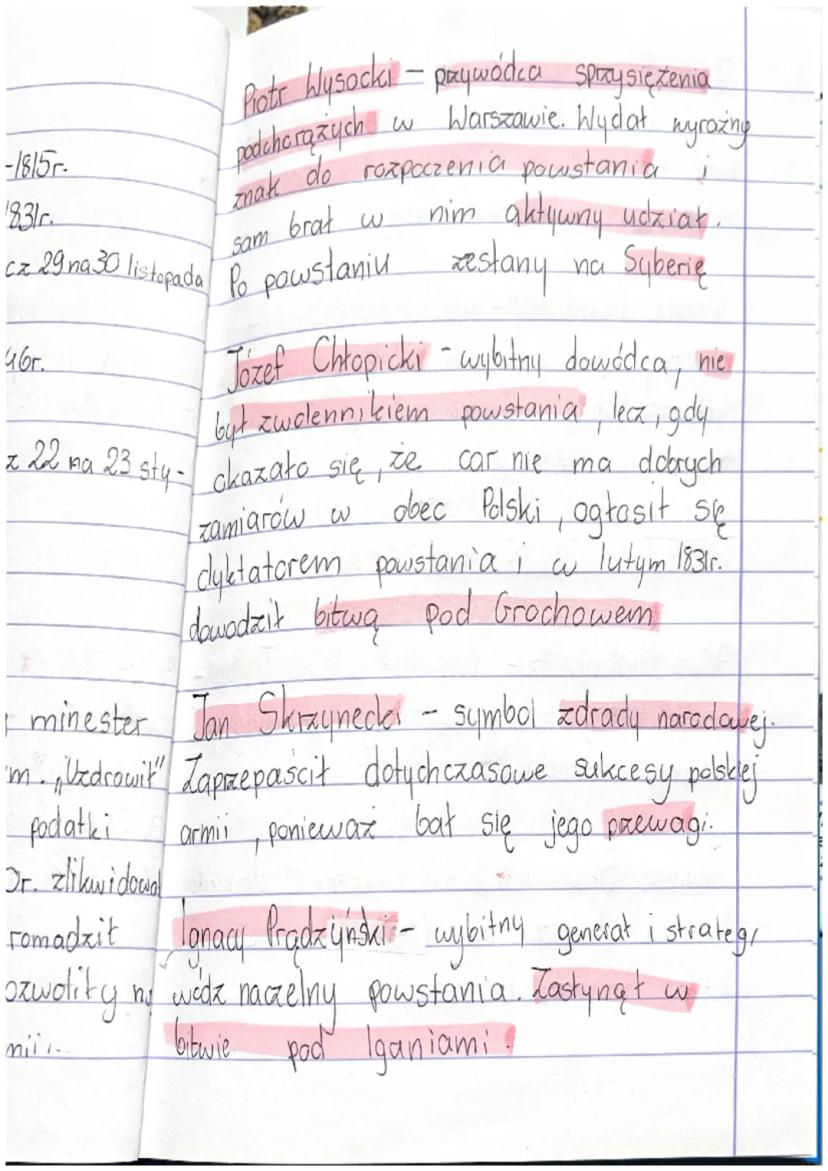 -1815r.
831r.
cz 29 na 30 listopada
46r.
z 22 na 23 sty-
minester
m. "Uzdrowił"
podatki
Dr. zlikwidował
romadził
ozwoliły na
mii.
Piotr Wysocki - przywódca sprzysiężenia
podchorążych w Warszawie. Wydał wyroźny
znak do rozpoczenia powstania i
sam brał w nim aktywny udział.
Po powstaniu zesłany na Syberię
Józef Chłopicki - wybitny dowódca, nie
był zwolennikiem powstania, lecz, gdy
okazało się, że car nie ma dobrych
zamiarów w obec Polski, ogłosił się
dyktatorem powstania i w lutym 1831r.
dowodził bitwą pod Grochowem
Jan Skrzynecki - symbol zdrady narodowej.
Zaprzepaścił dotychczasowe sukcesy polskiej
armii, ponieważ bał się jego przewagi.
Ignacy Prądzyński - wybitny generał i strateg,
wódz naczelny powstania. Zasłynął w
bitwie pod Iganiami.